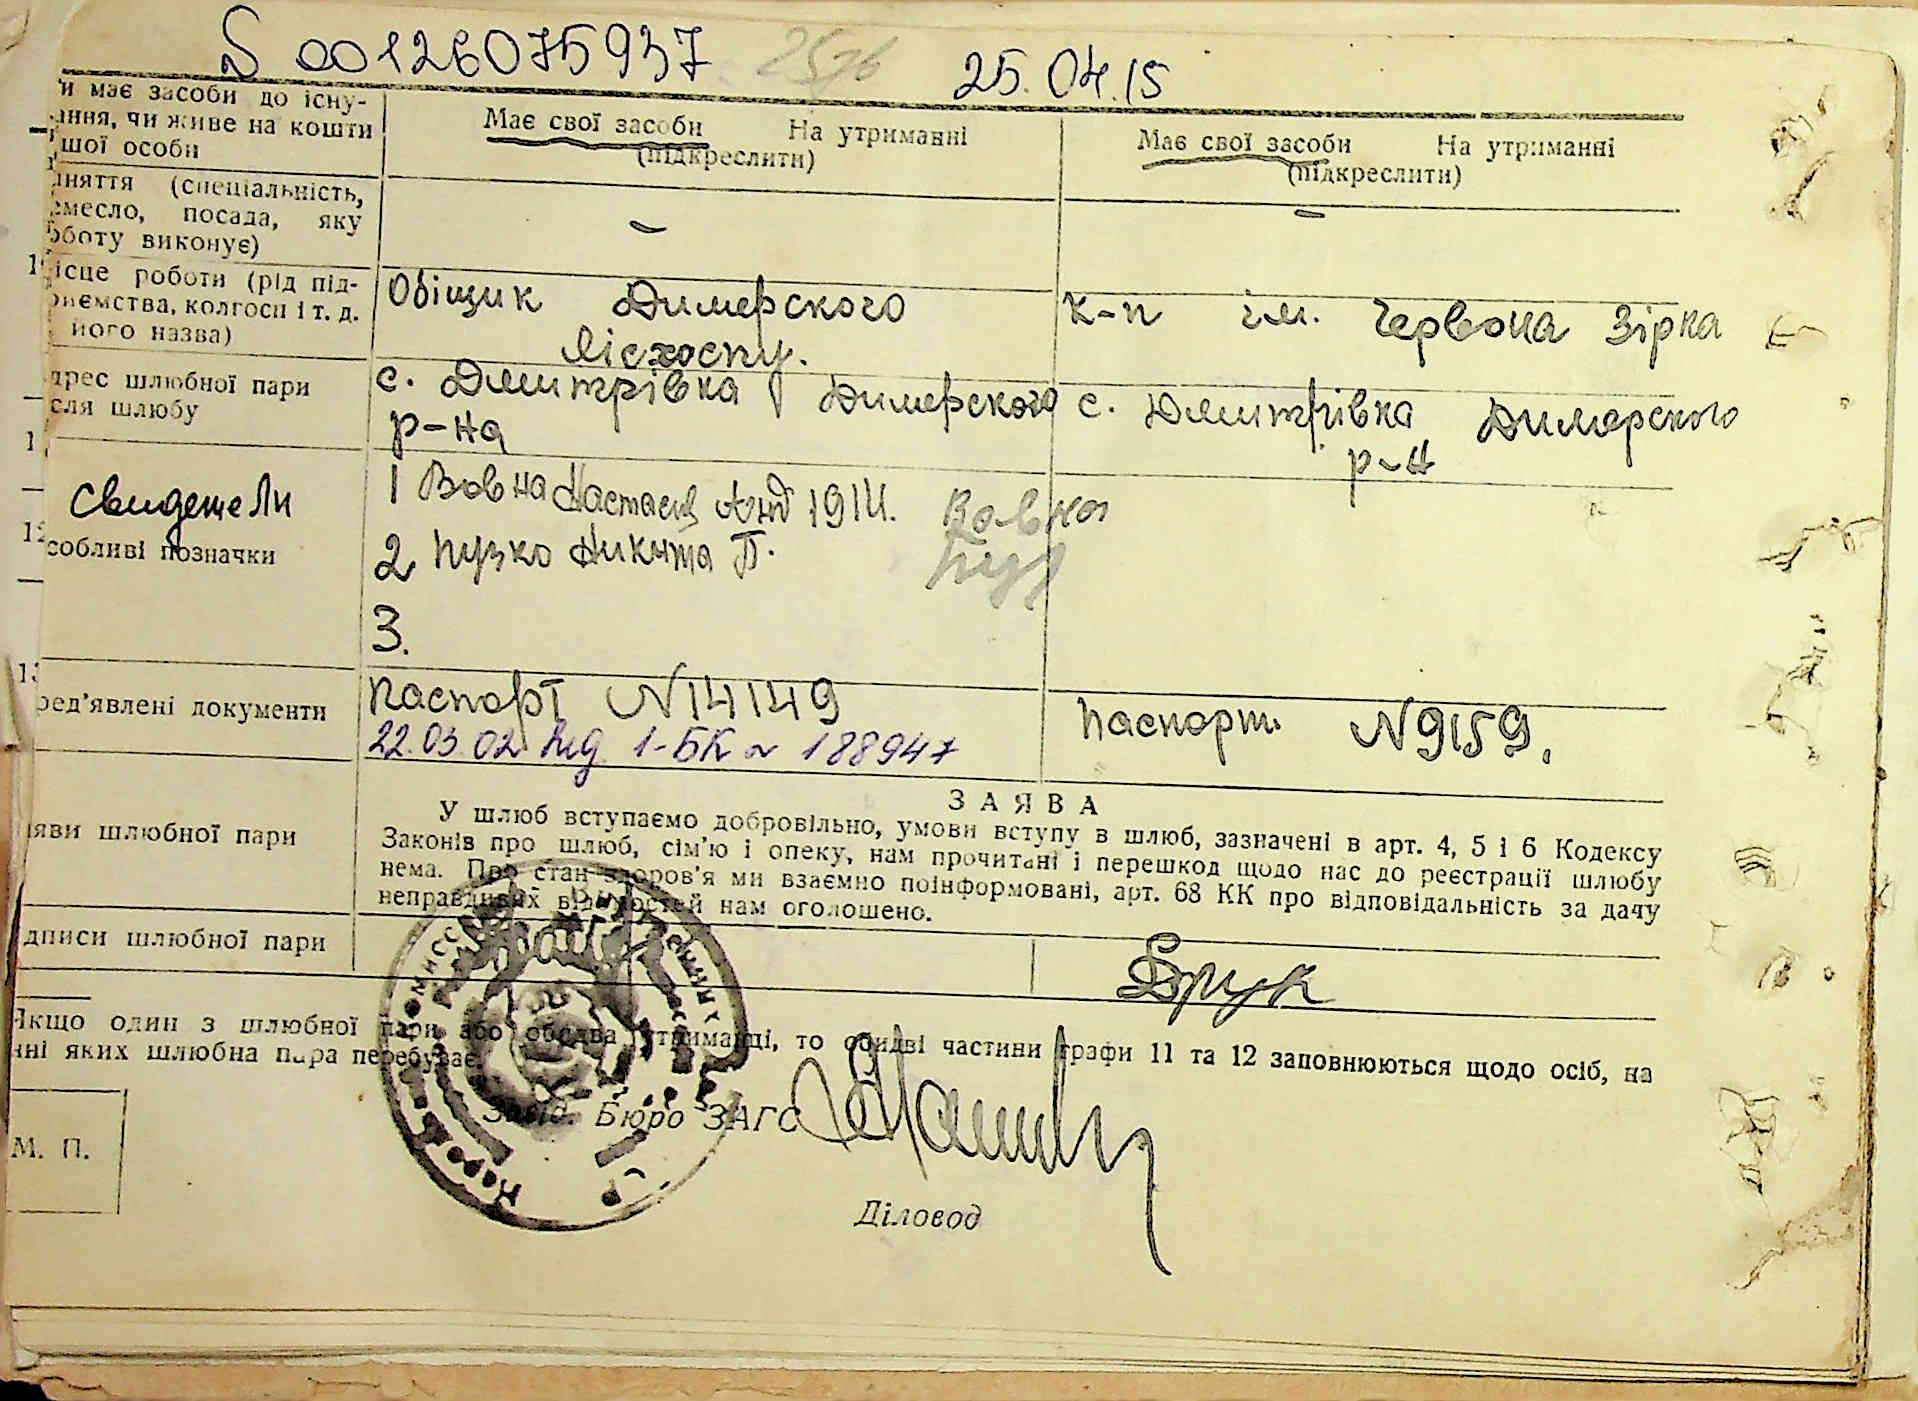 S 00126075937 25.04.15
и має засоби до існу-
ання, чи живе на кошти
шої особи
Має свої засоби На утриманні
(підкреслити)
Має свої засоби На утриманні
(підкреслити)
няття (спеціальність,
емесло, посада, яку
оботу виконує)
–
–
ісце роботи (рід під-
риємства, колгосп і т. д.
його назва)
Обіщик Димерского
лісхоспу.
к-п ім. Червона Зірка
дрес шлюбної пари
сля шлюбу
с. Дмитрівка Димерского
р-на
с. Дмитрівка Димерского
р-н
Свидетели
собливі позначки
1 Вовна Настасія Анд 1914. Вовна
2 Пузко Никита П. Пуз
3.
ред'явлені документи
Паспорт N 14149
22.03.02 1-БК N 188947
Паспорт. N 9159.
яви шлюбної пари
ЗАЯВА
У шлюб вступаємо добровільно, умови вступу в шлюб, зазначені в арт. 4, 5 і 6 Кодексу
Законів про шлюб, сім'ю і опеку, нам прочитані і перешкод щодо нас до реєстрації шлюбу
нема. Про стан здоров'я ми взаємно поінформовані, арт. 68 КК про відповідальність за дачу
неправдивих відомостей нам оголошено.
дписи шлюбної пари
Брук
Якщо один з шлюбної пари або обидва утриманці, то обидві частини графи 11 та 12 заповнюються щодо осіб, на
нні яких шлюбна пара перебуває
Завід. Бюро ЗАГС
М. П.
Діловод